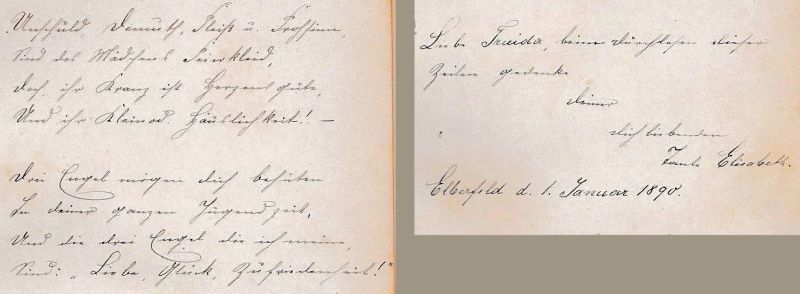 Unschuld, Demuth, Fleiß u. Frohsinn,
Sind des Mädchens Feierkleid,
Doch ihr Kranz ist Herzensgüte,
Und ihr Kleinod: Häuslichkeit! —
Drei Engel mögen dich behüten
In deiner ganzen Jugendzeit,
Und die drei Engel die ich meine,
Sind: „Liebe, Glück, Zufriedenheit!"
Liebe Frieda, beim Durchlesen dieser
Zeilen gedenke
deiner
dich liebenden
Tante Elisabeth.
Elberfeld d. 1. Januar 1890.